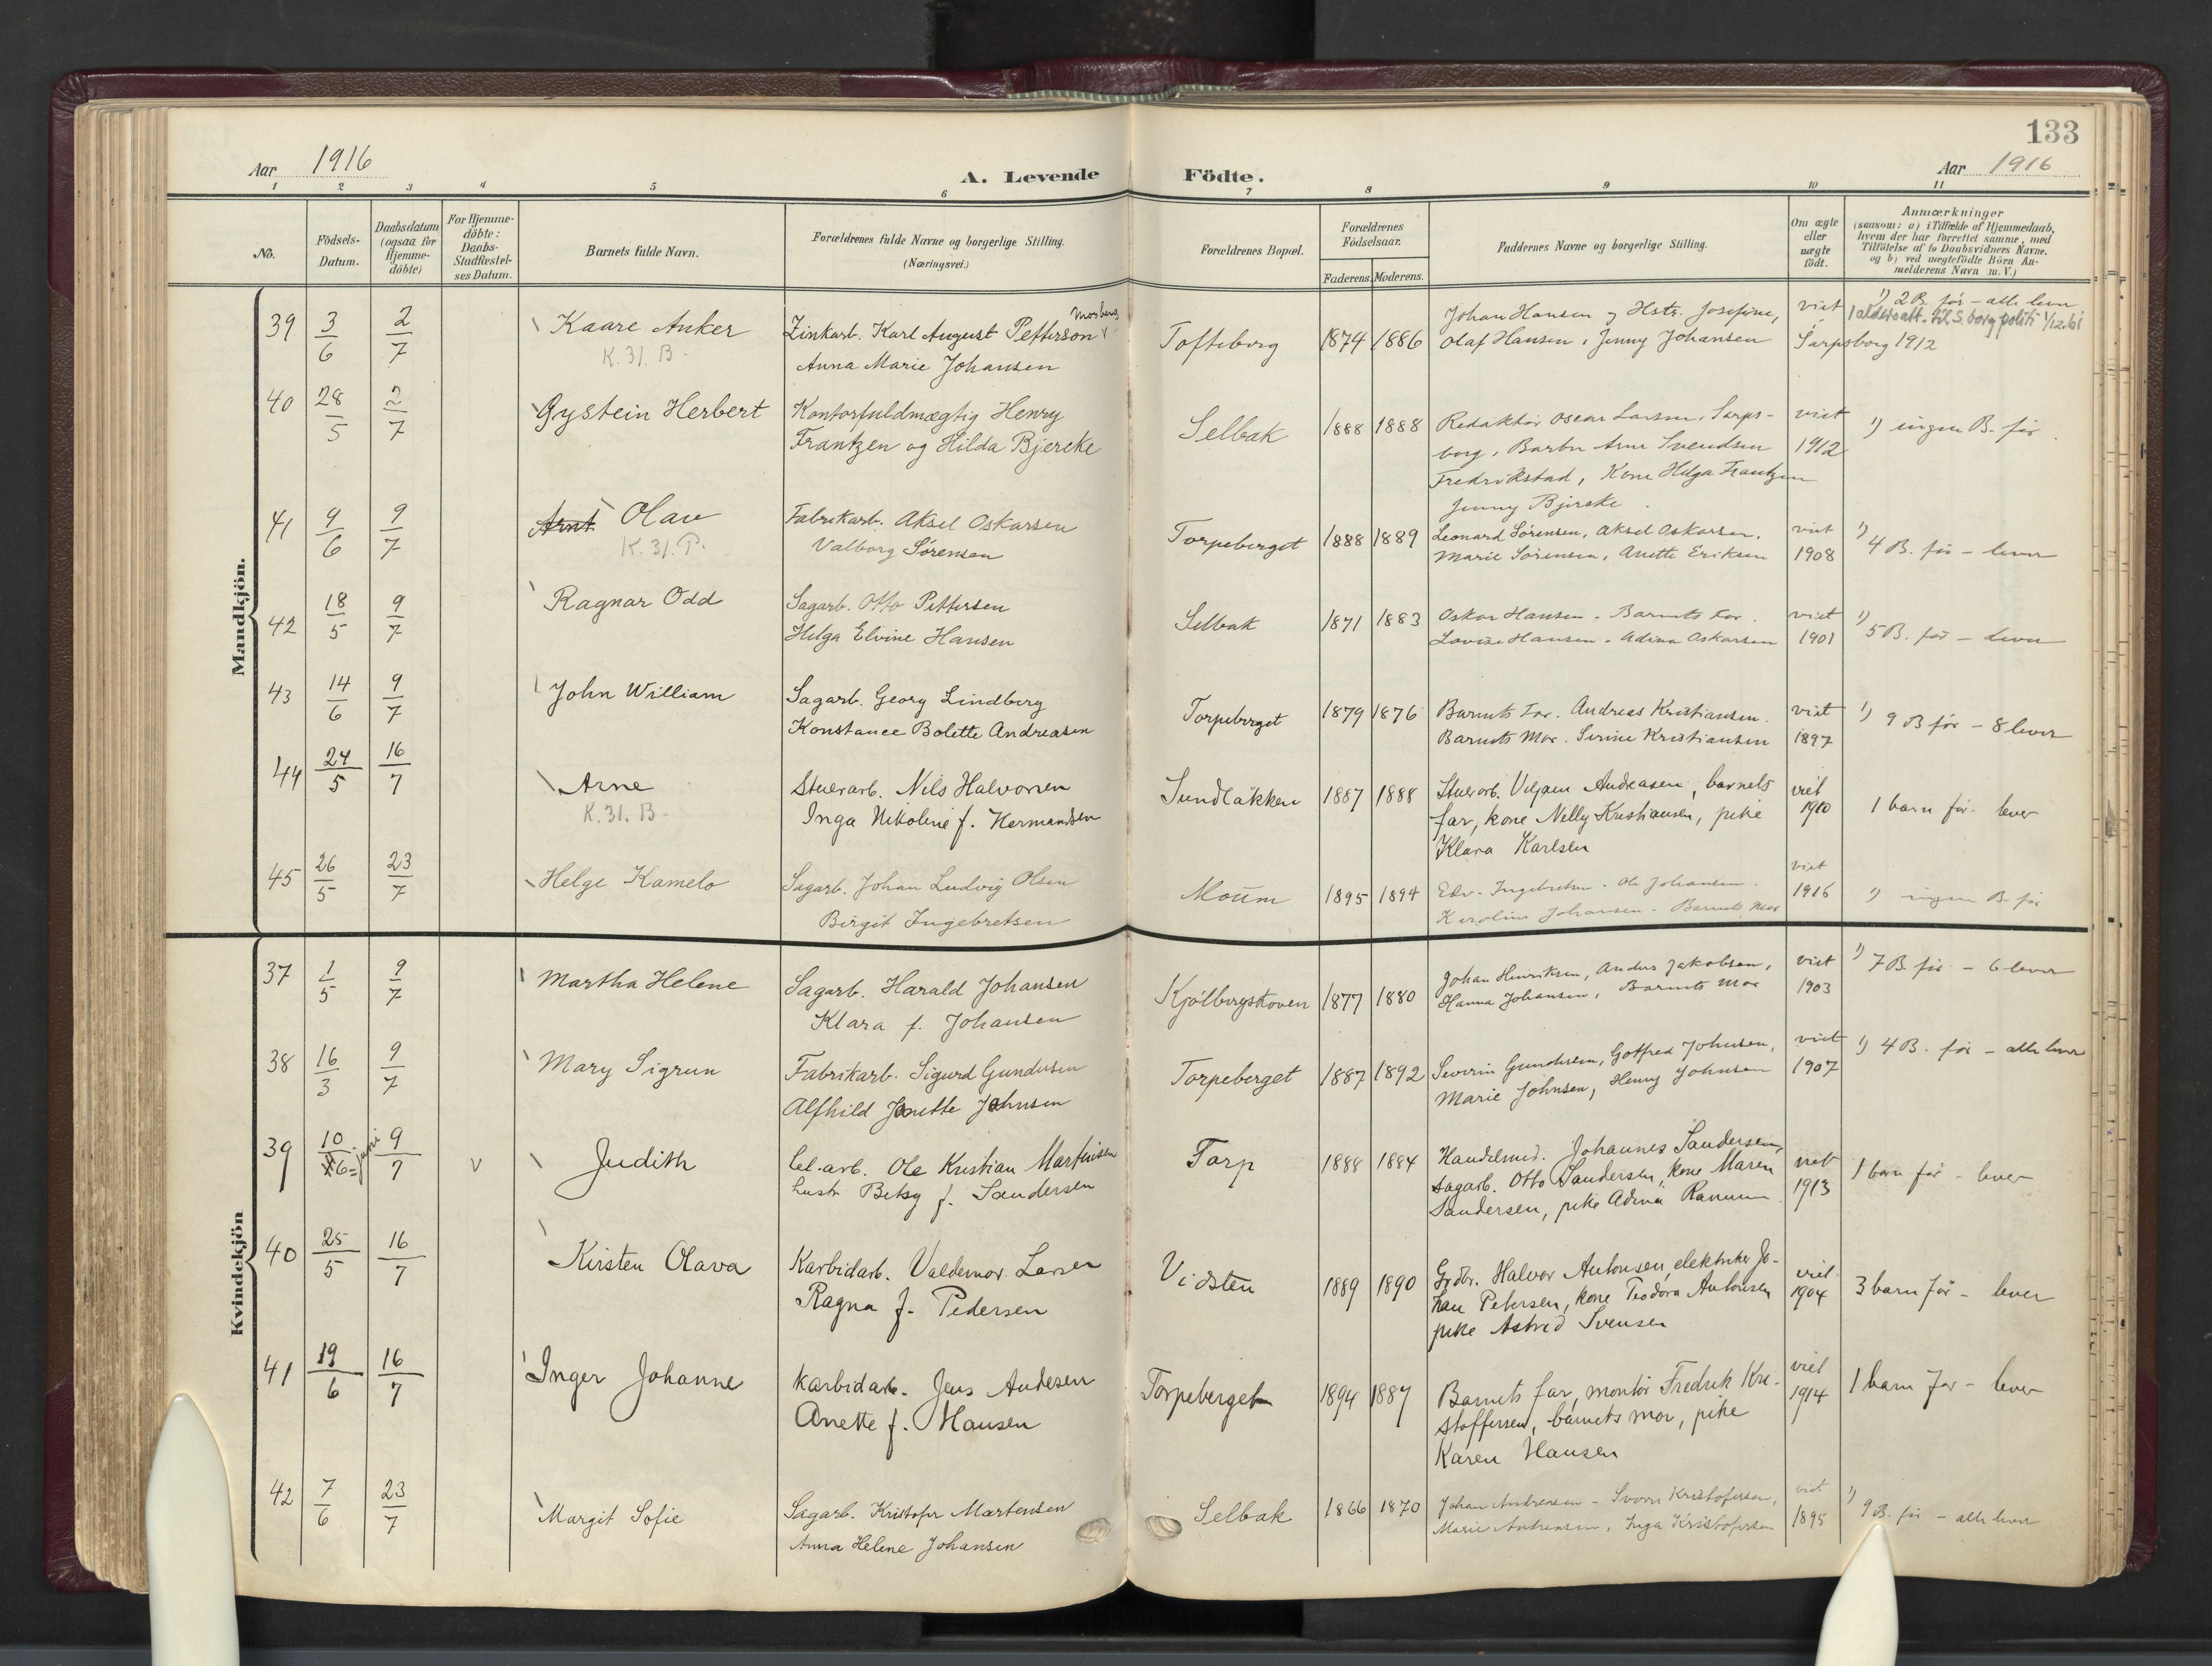 133
Aar 1916
A. Levende Födte.
Aar 1916
1 2 3 4 5 6 7 8 9 10 11
No.
Födsels-
Datum.
Daabsdatum
(ogsaa for
Hjemme-
döbte)
For Hjemme-
döbte:
Daabs-
Stadfæstel-
ses Datum.
Barnets fulde Navn.
Forældrenes fulde Navne og borgerlige Stilling.
(Næringsvei.)
Forældrenes Bopæl.
Forældrenes
Födselsaar.
Faderens. Moderens.
Faddernes Navne og borgerlige Stilling.
Om ægte
eller
uægte
födt.
Anmærkninger
(saasom: a) i Tilfælde af Hjemmedaab,
hvem der har forrettet samme, med
Tilföielse af to Daabsvidners Navne.
og b) ved uægtefödte Börn An-
melderens Navn m. V.)
Mandkjön.
39 3/6 2/7
Kaare Anker
K. 31. B.
Zinkarb. Karl August Petterson
Anna Marie Johansen
Tofteberg 1874 1886
Johan Hansen og Hstr. Josefine,
Olaf Hansen, Jenny Johansen
viet
Sarpsborg 1912
1) 2 B. før - alle lever
1 aldersatt. til S.borg politi 1/12.61
40 28/5 2/7
Øystein Herbert
Kontorfuldmægtig Henry
Frantzen og Hilda Bjercke
Selbak 1888 1888
Redaktør Oscar Larsen, Sarps-
borg, Barber Arne Svendsen
Fredrikstad, Kone Helga Frantzen
Jenny Bjercke
viet
1912
1) ingen B. før
41 9/6 9/7
Arnt Olav
K. 31. P.
Fabrikarb. Aksel Oskarsen
Valborg Sørensen
Torpeberget 1888 1889
Leonard Sørensen, Aksel Oskarsen,
Marie Sørensen, Anette Eriksen
viet
1908
1) 4 B. før - lever
42 18/5 9/7
Ragnar Odd
Sagarb. Otto Pettersen
Helga Elvine Hansen
Selbak 1871 1883
Oskar Hansen - Barnets Far.
Lovise Hansen - Adina Oskarsen
viet
1901
1) 5 B. før - lever
43 14/6 9/7
John William
Sagarb. Georg Lindberg
Konstance Bolette Andreasen
Torpeberget 1879 1876
Barnets Far. Andreas Kristiansen.
Barnets Mor. Serine Kristiansen
viet
1897
1) 9 B før - 8 lever
44 24/5 16/7
Arne
K. 31. B.
Stuerarb. Nils Halvorsen
Inga Nikoline f. Hermandsen
Sundløkken 1887 1888
Stuerarb. Viljam Andreasen, barnets
far, kone Nelly Kristiansen, pike
Klara Karlsen
viet
1910
1 barn før - lever
45 26/5 23/7
Helge Kamelo
Sagarb. Johan Ludvig Olsen
Birgit Ingebretsen
Moum 1895 1894
Edv. Ingebretsen. Ole Johansen.
Karoline Johansen. Barnets Mor
viet
1916
1) ingen B. før
Kvindekjön
37 1/5 9/7
Martha Helene
Sagarb. Harald Johansen
Klara f. Johansen
Kjølbergskoven 1877 1880
Johan Henriksen, Anders Jakobsen,
Hanna Johansen, Barnets Mor
viet
1903
1) 7 B. før - 6 lever
38 16/3 9/7
Mary Sigrun
Fabrikarb. Sigurd Gundersen
Alfhild Janette Johnsen
Torpeberget 1887 1892
Severin Gundersen, Gotfred Johnsen,
Marie Johnsen, Henny Johnsen
viet
1907
1) 4 B. før - alle lever
39 10/6 = juni 9/7 v
Judith
Cel.arb. Ole Kristian Martinsen
hustr. Betsy f. Sandersen
Torp 1888 1884
Handelsmd. Johannes Sandersen,
sagarb. Otto Sandersen, kone Maren
Sandersen, pike Adina Ranum
viet
1913
1 barn før - lever
40 25/5 16/7
Kirsten Olava
Karbidarb. Valdemar Larsen
Ragna f. Pedersen
Vidsten 1889 1890
Grdbr. Halvor Antonsen, elektriker Jo-
han Petersen, kone Teodora Antonsen
pike Astrid Svensen
viet
1904
3 barn før - lever
41 19/6 16/7
Inger Johanne
Karbidarb. Jens Andesen
Anette f. Hansen
Torpeberget 1894 1887
Barnets far, montør Fredrik Kri-
stoffersen, barnets mor, pike
Karen Hansen
viet
1914
1 barn før - lever
42 7/6 23/7
Margit Sofie
Sagarb. Kristofer Martensen
Anna Helene Johansen
Selbak 1866 1870
Johan Andreasen - Sverre Kristofersen,
Marie Andreasen, Inga Kristofersen
viet
1895
1) 9 B. før - alle lever